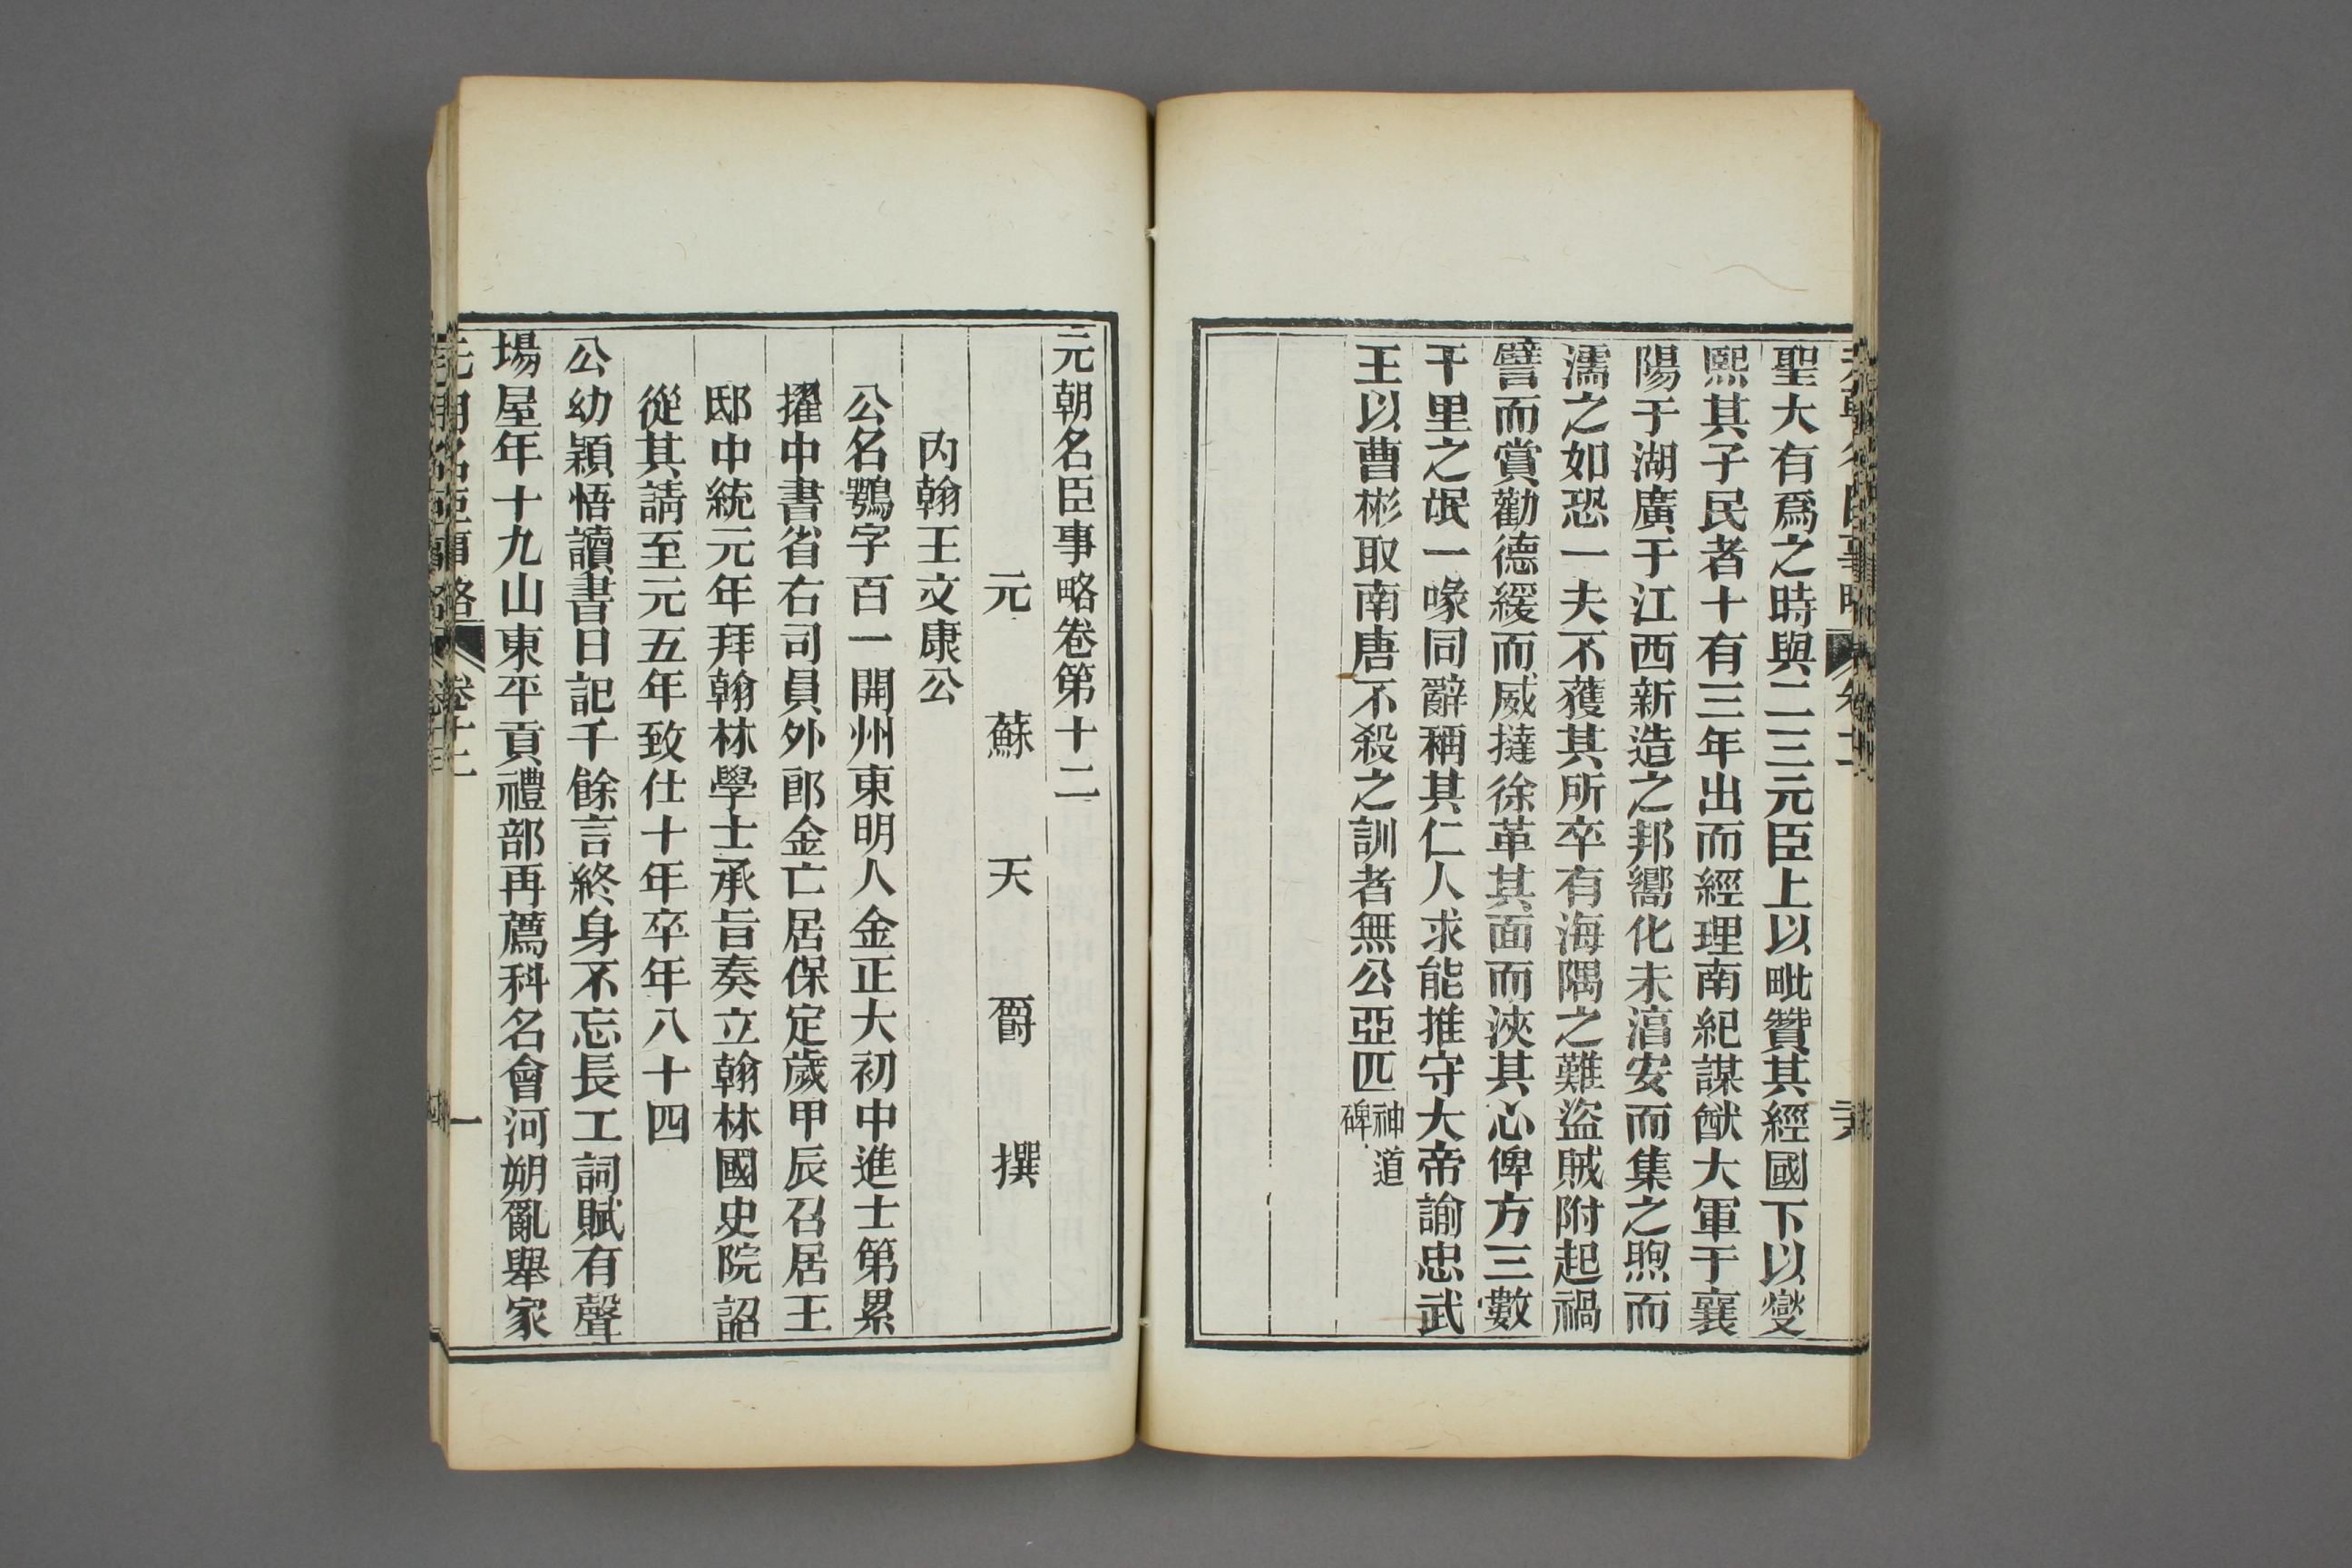 聖大有爲之時與二三元臣上以毗贊其經國下以燮
熙其子民者十有三年出而經理南紀謀猷大軍于襄
陽于湖廣于江西新造之邦嚮化未湻安而集之煦而
濡之如恐一夫不獲其所卒有海隅之難盜賊附起禍
譬而賞勸德緩而威撻徐革其面而浹其心俾方三數
千里之氓一喙同辭稱其仁人求能推守大帝諭忠武
王以曹彬取南唐不殺之訓者無公亞匹神道碑
元朝名臣事略卷第十二
元 蘇 天 爵 撰
內翰王文康公
公名鶚字百一開州東明人金正大初中進士第累
擢中書省右司員外郎金亡居保定歲甲辰召居王
邸中統元年拜翰林學士承旨奏立翰林國史院詔
從其請至元五年致仕十年卒年八十四
公幼穎悟讀書日記千餘言終身不忘長工詞賦有聲
場屋年十九山東平貢禮部再薦科名會河朔亂舉家
卷十二
一